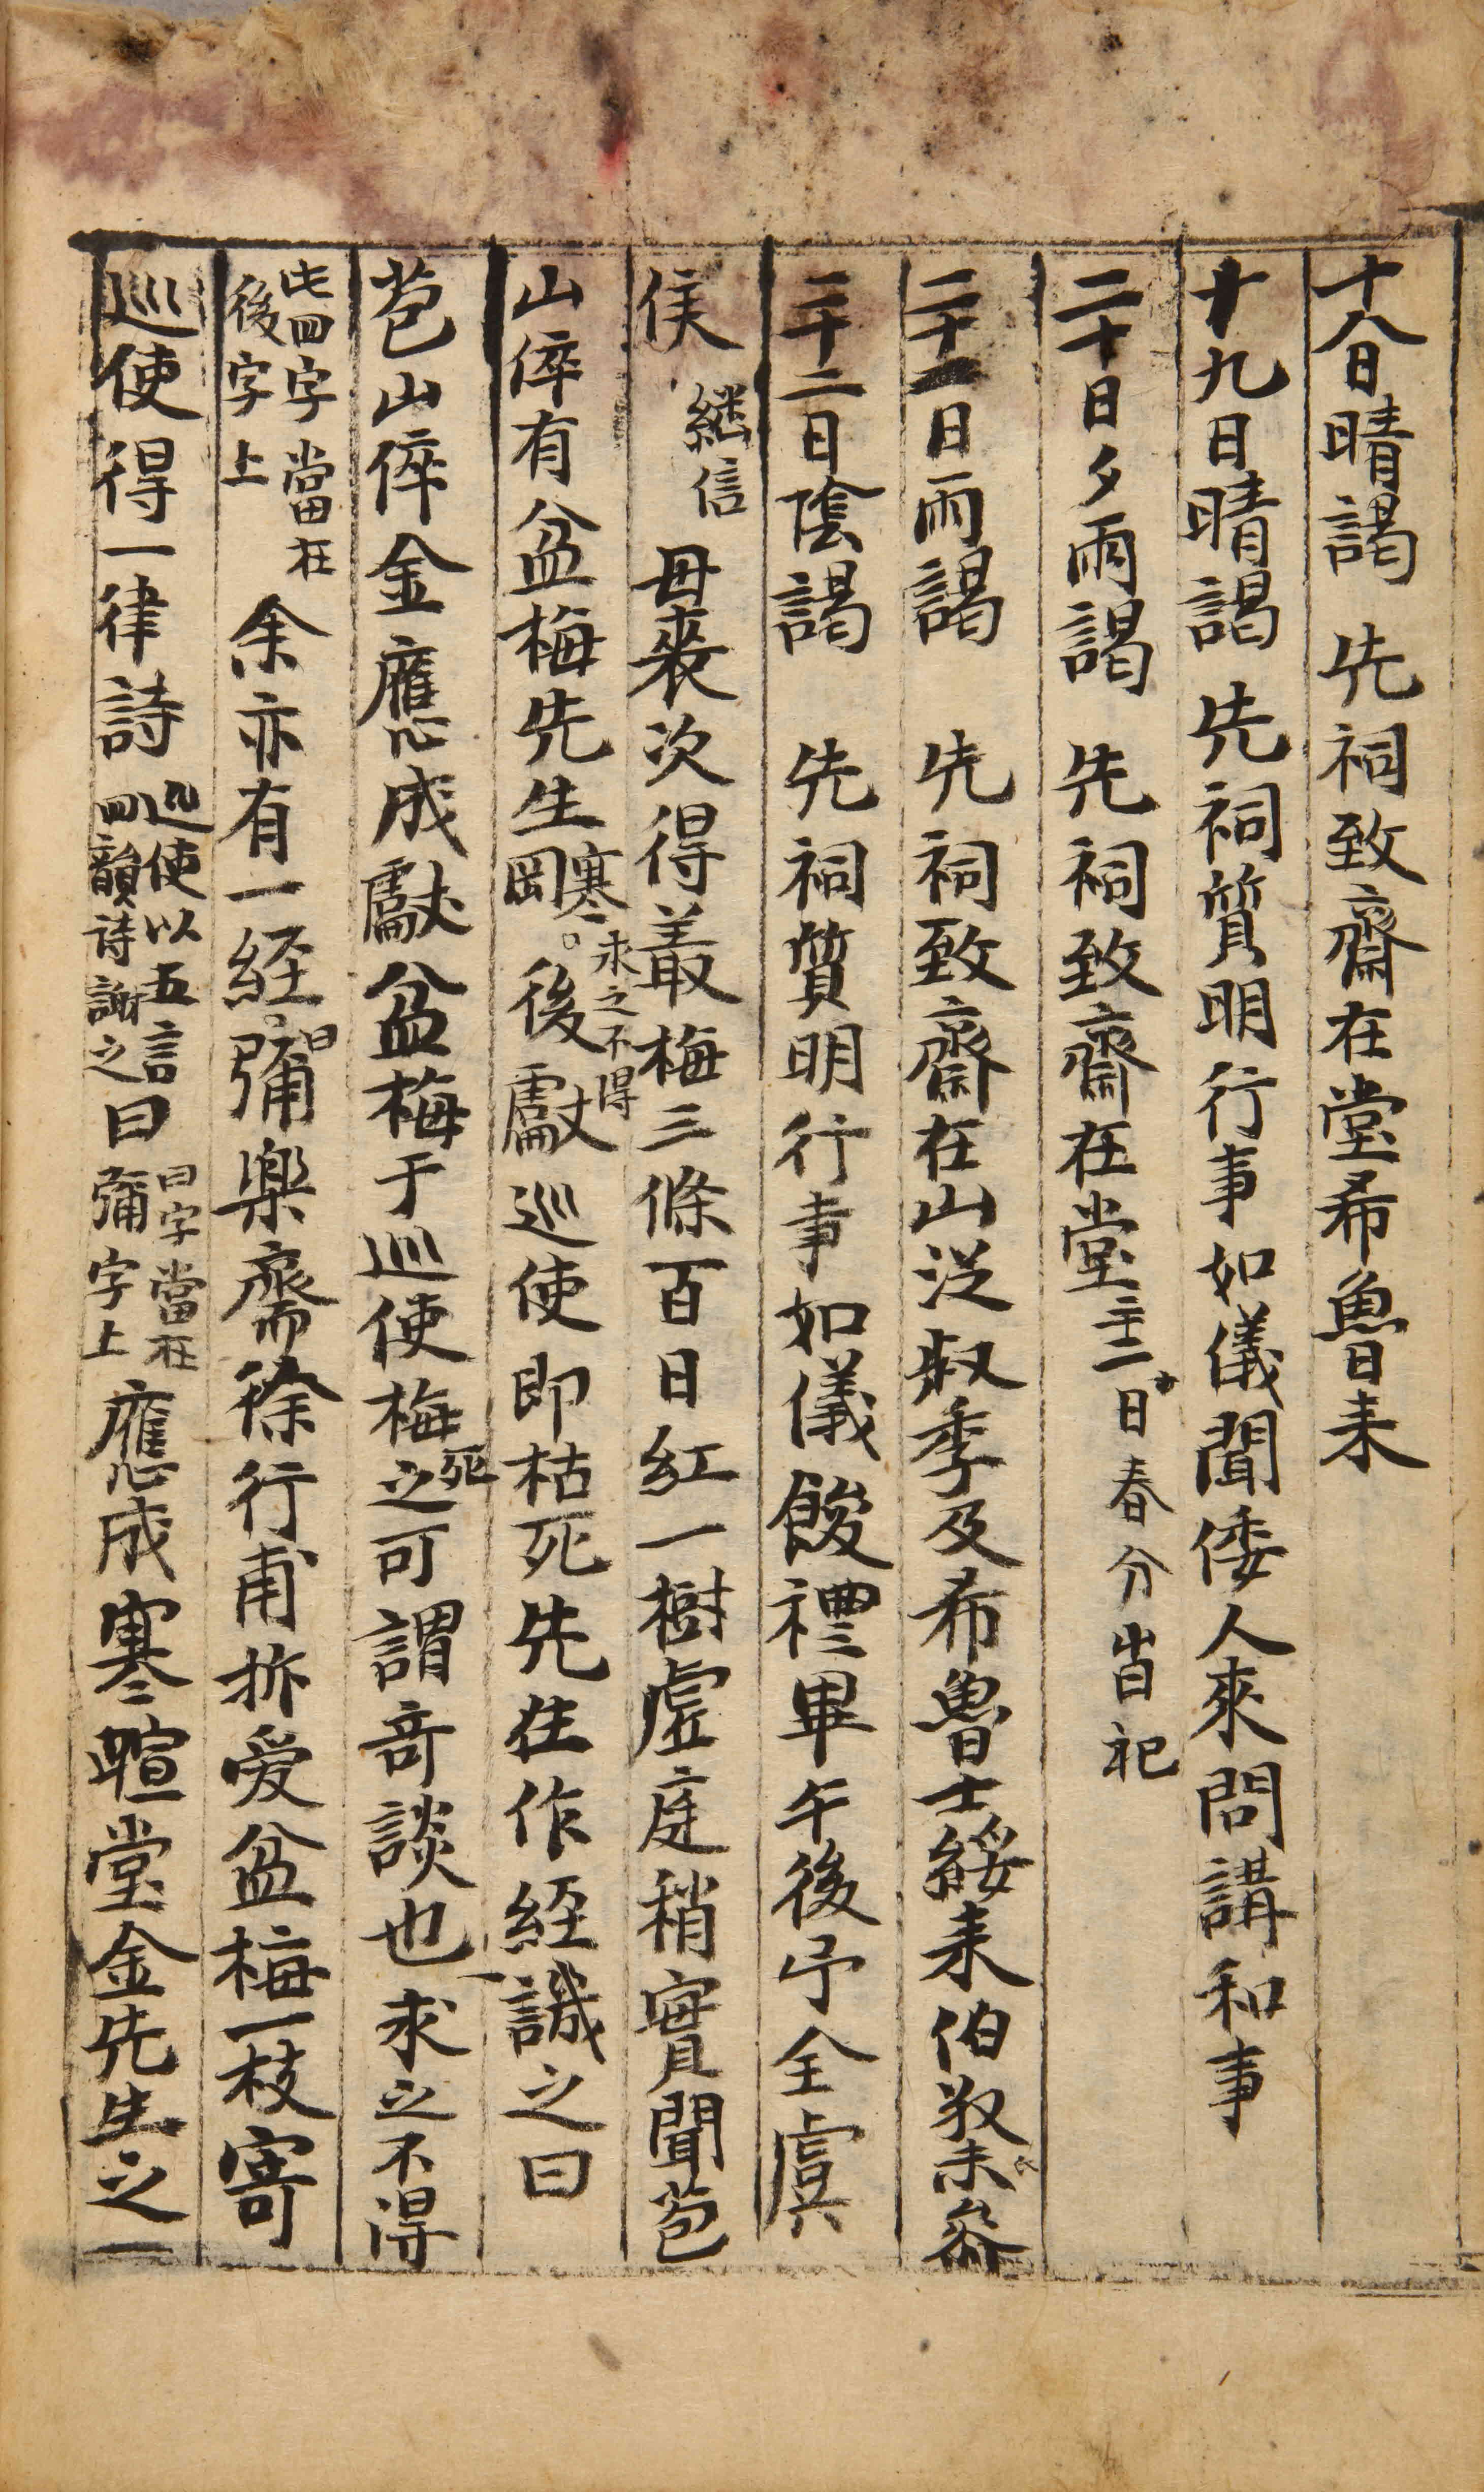 十八日晴謁 先祠致齋在堂希魯来
十九日晴謁 先祠質明行事如儀聞倭人來問講和事
二十日夕雨謁 先祠致齋在堂二十二日春分時祀
二十一日雨謁 先祠致齋在山泛叔季及希魯士綏来伯叔来參
二十二日陰謁 先祠質明行事如儀餕禮畢午後弔全虞
侯 繼信 母喪次得叢梅三條百日紅一樹虛庭稍實聞苞
山倅有盆梅先生寒岡求之不得後獻巡使即枯死先生作経識之曰
苞山倅金應成獻盆梅于巡使梅死之可謂奇談也求之不得
此四字當在後字上余亦有一経曰彌樂齋徐行甫折爰盆梅一枝寄
巡使得一律詩巡使以五言四韻詩謝之曰曰字當在彌字上應成寒暄堂金先生之一